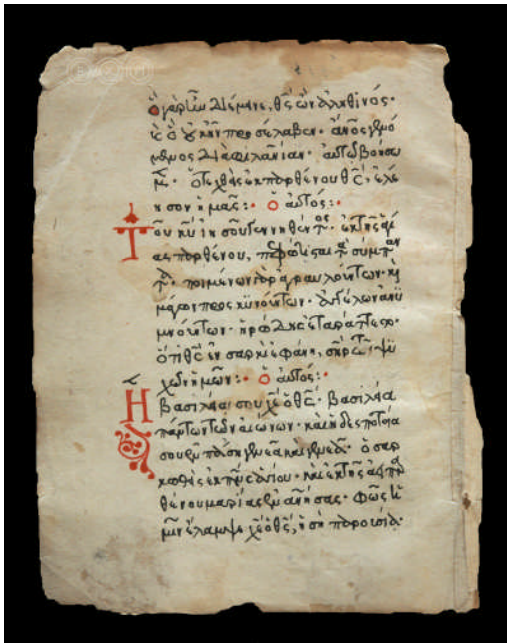 ὃ γὰρ ἦν διέμεινε, θς ὢν ἀληθινός·
κ ὃ οὐκ ἦν προσέλαβεν· ἄνος γενό
μενος διὰ φιλανίαν· αὐτῷ βοήσω
μεν· ὁ τεχθεὶς ἐκ παρθένου θς, ἐλέη
ησον ἡμᾶς:· ὁ αὐτός:·
Τοῦ κυ ιυ γεννηθέντος· ἐκ τῆς ἁγί
ας παρθένου, πεφώτισται τὰ σύμπαντ
α· ποιμένων γὰρ ἀγραυλούντων· κ
μάγων προσκυνούντων· ἀγγέλων ἀνυ
μνούντων· ἡρώδης ἐταράττετο·
ὅτι θς ἐν σαρκὶ ἐφάνη, σηρ τῶν ψυ
χῶν ἡμῶν:· ὁ αὐτός:·
Ἡ βασιλεία σου χε ὁ θς· βασιλεία
πάντων τῶν αἰώνων· καὶ ἡ δεσποτεία
σου ἐν πάσῃ γενεᾷ καὶ γενεᾷ· ὁ σαρ
κωθεὶς ἐκ πνς ἁγίου· καὶ ἐκ τῆς ἀειπαρ
θένου μαρίας ἐνανήσας· φῶς ἡ
μῖν ἔλαμψε χε ὁ θς, ἡ σὴ παρουσία·